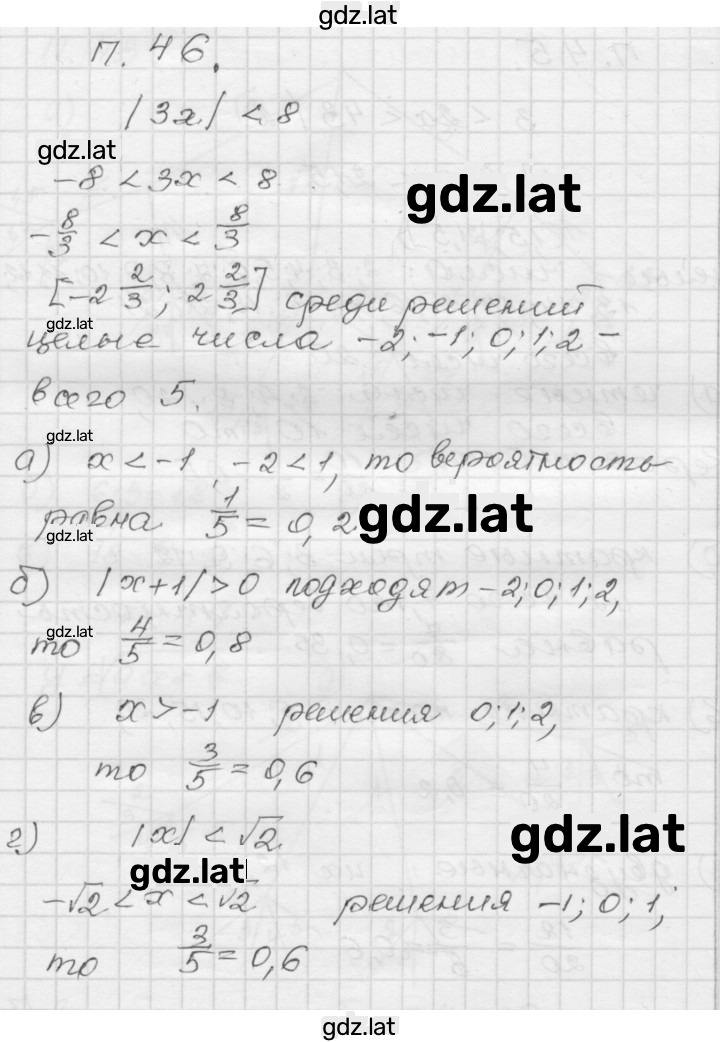 gdz.lat
п. 46.
|3x| < 8
gdz.lat
-8 < 3x < 8
gdz.lat
-8/3 < x < 8/3
[-2 2/3; 2 2/3] среди решений
gdz.lat
целые числа -2; -1; 0; 1; 2 -
всего 5.
gdz.lat
а) x < -1, -2 < 1, то вероятность
равна 1/5 = 0,2
gdz.lat
gdz.lat
б) |x+1| > 0 подходят -2; 0; 1; 2,
gdz.lat
то 4/5 = 0,8
в) x > -1 решения 0; 1; 2,
то 3/5 = 0,6
г) |x| < √2.
gdz.lat
gdz.lat
-√2 < x < √2 решения -1; 0; 1;
то 3/5 = 0,6
gdz.lat